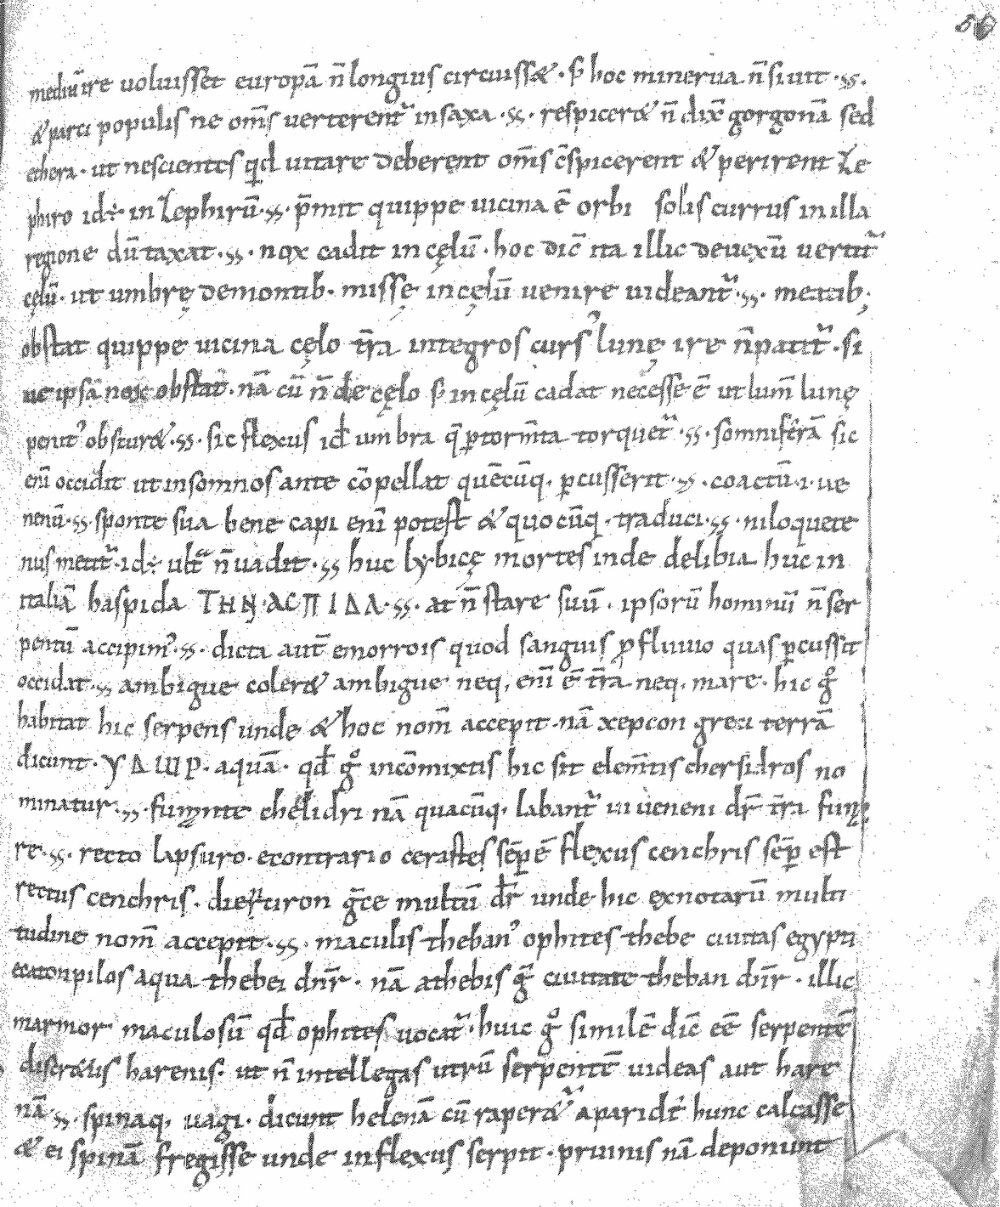 56
mediū ire uoluisset europā n̄ longius circuiss&. s; hoc minerua n̄ siuit .ss.
& parci populis ne om̄s uerterent᷑ in saxa .ss. respicer& n̄ dix̄ gorgonā sed
ethera. ut nescientes qd uitare deberent om̄s c̄spicerent & perirent Ze
phiro id÷ in Zephirū .ss. p̄mit quippe uicina ē orbi solis currus in illa
regione dū taxat .ss. nox cadit in cęlū. hoc dic̄ ita illic deuexū uertit᷑
cęlū. ut umbrę de montib. missę in cęlū uenire uideant᷑ .ss. metib;
obstat quippe uicina cęlo t̄ra integros curs' lunę ire n̄ patit᷑. si
ue ipsā nox obstat. nā cū n̄ de cęlo s; in cęlū cadat necesse ē ut lum̄ lunę
penit' obscur& .ss. sic flexus id umbra q̄ p torm̄ta torquet᷑ .ss. somniferā sic
eni occidit ut in somnos ante cōpellat quēcūq. pcusserit .ss. coactū .i. ue
nenū .ss. sponte sua bene capi enī potest & quocūq. traduci .ss. niloque te
nus metit᷑. id÷ ult᷑ n̄ uadit .ss. huc lybicę mortes inde de libia huc in
italiā haspida ΤΗΝ ΑϹΠΙΔΑ .ss. at n̄ stare suū. ipsorū hominū n̄ ser
pentū accipim' .ss. dicta aut̄ emorrois quod sanguis pfluuio quas pcussit
occidat .ss. ambigue coler& ambigue neq. enī ē t̄ra neq. mare. hic g°
habitat hic serpens unde & hoc nom̄ accepit. nā xepcon greci terrā
dicunt. ΥΔШΡ. aquā. qd g° incōmixtis hic sit elem̄tis chersidros no
minatur .ss. fumante chelidri nā quacūq. labant᷑ ui ueneni dr̄ t̄ra fum
re .ss. recto lapsuro. econtrario cerastes sēp ē flexus cenchris sēp est
rectus cenchris. diestiron ḡce multū dr̄ unde hic ex notarū multi
tudine nom̄ accepit .ss. maculis theban' ophites thebe ciuitas egypti
ecatonpilos a qua thebei dn̄r. nā a thebis ḡ ciuitate theban dn̄r. illic
marmor maculosū qd ophites uocat᷑. huic g° similē dic̄ eē serpentē
discr&us harenis. ut n̄ intellegas utrū serpentē uideas aut hare
nā .ss. spinaq. uagi. dicunt helenā cū raper&᷑ a parid᷑ hunc calcasse
& ei spinā fregisse unde inflexus serpit. pruinis nā deponunt